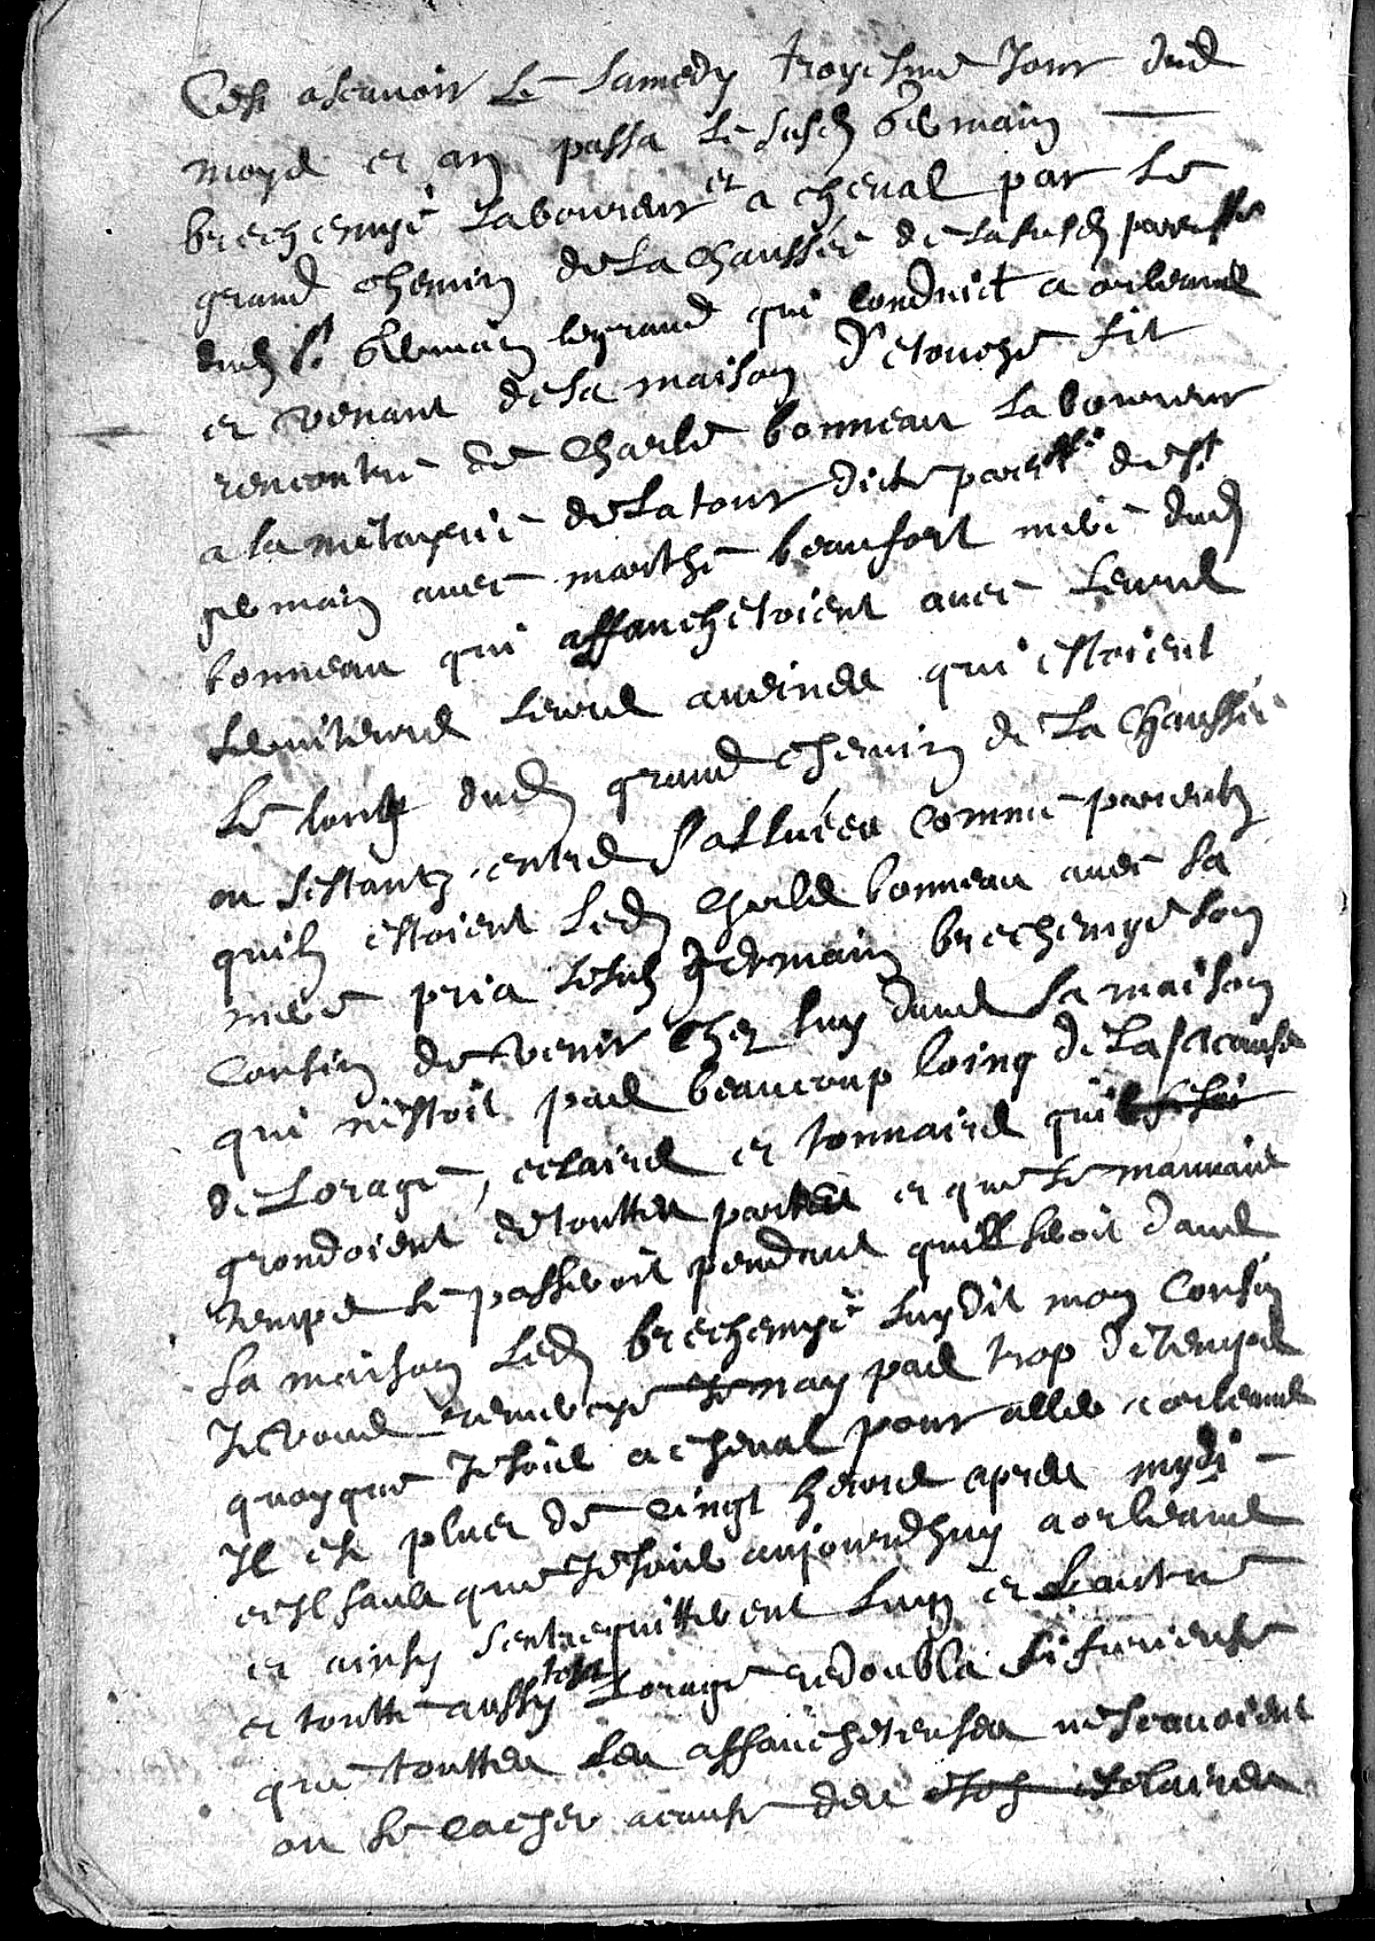 Cest ascavoir le samedy troyesme Jour dud
moys et an passa le susd Germain
brechemyé Laboureur et a cheval par le
grand chemin de La Chaussée de La susd parroisse
dud St Germain legrand qui conduict a orleans
et venant de sa maison D'etouché fit
rencontre de Charle bonneau Laboureur
a la métayrie de La tour dicte parroisse de St
germain avec marthe beaufort mere dud
bonneau qui affauchetoient avec Leurs
serviteurs Leurs aveines qui estoient
Le long dud grand chemin de La Chaussée
ou sestantz entre salluées comme parentz
quils estoient Led Charle bonneau avec sa
mere pria lesusd germain brechemyé son
Cousin de venir chez luy dans sa maison
qui n'estoit pas beaucoup loing de La acause
de Lorage, eclairs et tonnaires quil
grondoient de touttes partes et que le mauvais
temps se passeroit pendant quill seroit dans
sa maison Led brechemyé luy dit mon Cousin
Je vous remercye Je nay pas trop de temps
quoyque Je sois a cheval pour aller a orleans
Il est plues de cinqt heures apres mydi
et Il fault que Je sois aujourdhuy a orleans
et ainsy sentrequitterent Luy et Lautre
et toutte aussy tost Lorage redoubla si furieuse
que touttes les affaucheteuses ne scavoient
ou se cacher acause des esclaires